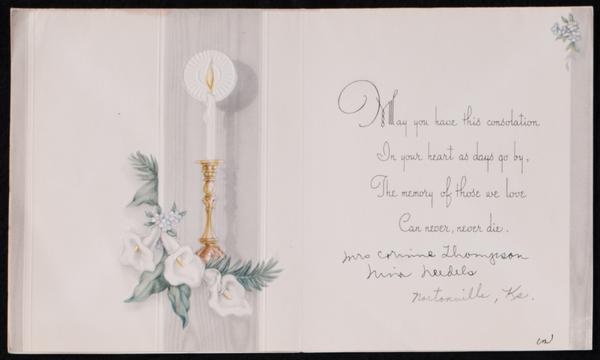 May you have this consolation
In your heart as days go by,
The memory of those we love
Can never, never die.
Mrs Corinne Thompson
Nina Needels
Nortonville, Ks.